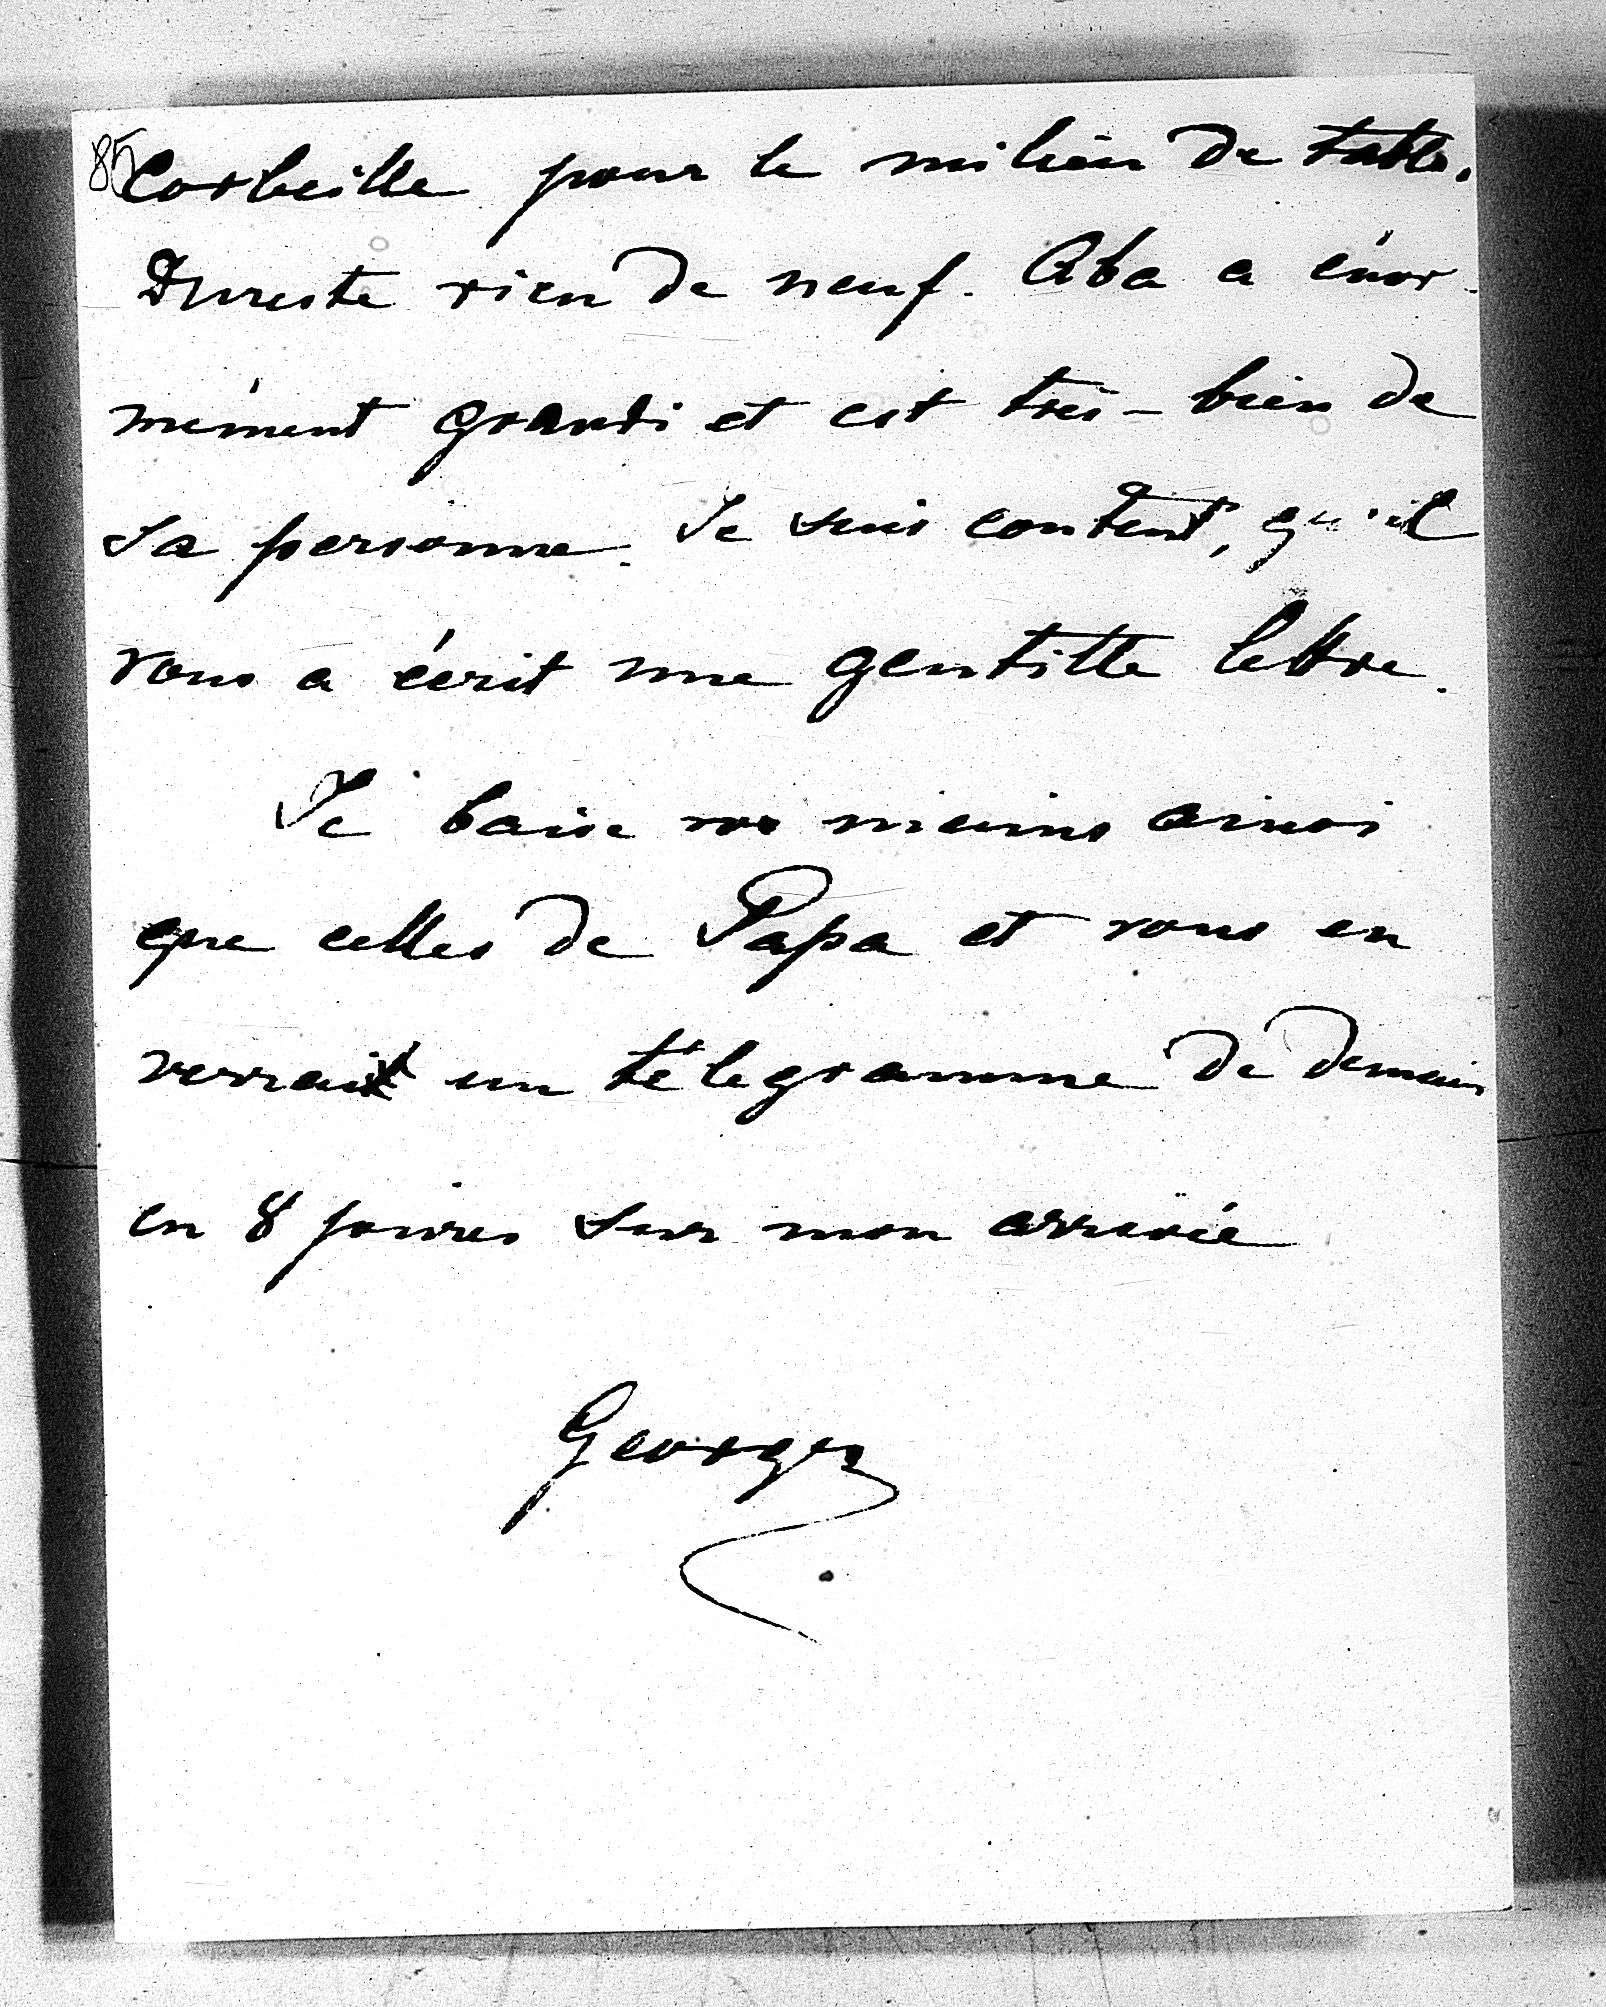 85
Corbeille pour le milieu de table.
Dureste rien de neuf. Aba a énor-
mément grandi et est très-bien de
sa personne. Je suis content, qu'il
vous a écrit une gentille lettre.
Je baise vos mains ainsi
que celles de Papa et vous en
verrai un télegramme de demain
en 8 jours sur mon arrivée
Georges